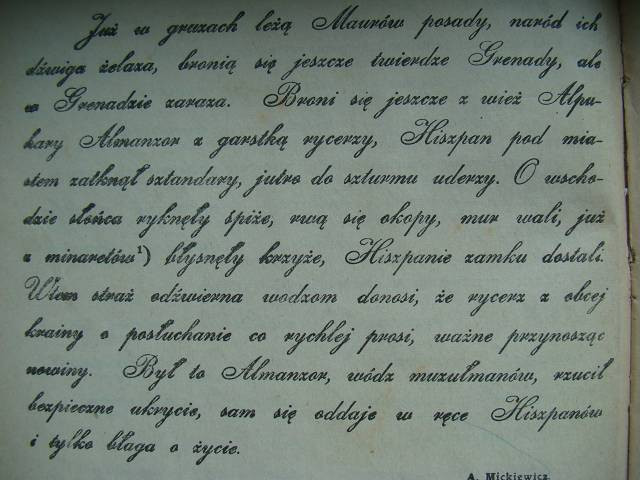 Już w gruzach leżą Maurów posady, naród ich
dźwiga żelaza, bronią się jeszcze twierdze Grenady, ale
w Grenadzie zaraza. Broni się jeszcze z wież Alpu-
hary Almanzor z garstką rycerzy, Hiszpan pod mia-
stem zatknął sztandary, jutro do szturmu uderzy. O wscho-
dzie słońca ryknęły spiże, rwą się okopy, mur wali, już
z minaretów¹) błysnęły krzyże, Hiszpanie zamku dostali.
Wtem straż odźwierna wodzom donosi, że rycerz z obcej
krainy o posłuchanie co rychlej prosi, ważne przynosząc
nowiny. Był to Almanzor, wódz muzułmanów, rzucił
bezpieczne ukrycie, sam się oddaje w ręce Hiszpanów
i tylko błaga o życie.
A. Mickiewicz.